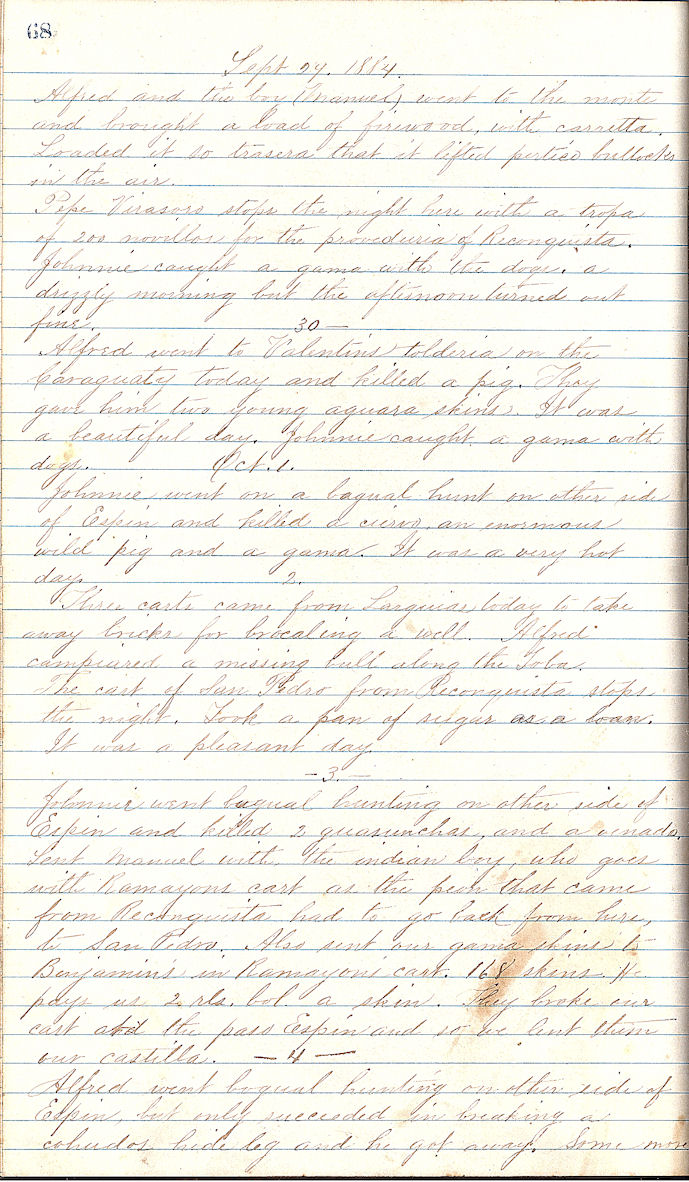 68
Sept 29. 1884.
Alfred and the boy (Manuel) went to the monte
and brought a load of firewood, with carretta.
Loaded it so trasera that it lifted bullocks
in the air.
Pepe Virasoro stops the night here with a tropa
of 200 novillos for the proveduria of Reconquista.
Johnnie caught a gama with the dogs. a
drizzly morning but the afternoon turned out
fine. 30 —
Alfred went to Valentins tolderia on the
Caraguaty today and killed a pig. They
gave him two young aguara skins. It was
a beautiful day. Johnnie caught a gama with
dogs. Oct. 1.
Johnnie went on a bagual hunt on other side
of Espin and killed a ciervo, an enormous
wild pig and a gama. It was a very hot
day. 2.
Three carts came from today to take
away bricks for brocaling a well. Alfred
campeared a missing bull along the Toba.
The cart of San Pedro from Reconquista stops
the night. Took a pan of sugar as a loan.
It was a pleasant day.
— 3. —
Johnnie went bagual hunting on other side of
Espin and killed 2 guasunchas, and a venado.
Sent Manuel with the indian boy, who goes
with Ramayons cart as the peon that came
from Reconquista had to go back from here,
to San Pedro. Also sent our gama skins to
Benjamin's in Ramayons cart. 168 skins. He
pays us 2 rls. bol a skin. They broke our
cart the paso Espin and so we lent them
our castilla. — 4 —
Alfred went bagual hunting on other side of
Espin, but only succeeded in breaking a
cohudos hide leg and he got away. Some more